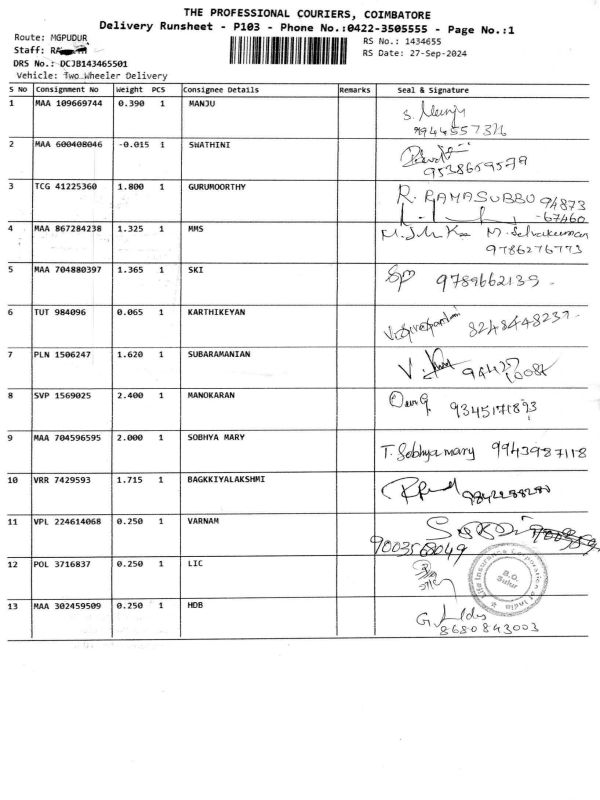 THE PROFESSIONAL COURIERS, COIMBATORE
Delivery Runsheet - P103 - Phone No.:0422-3505555 - Page No.:1
Route: MGPUDUR
Staff: RA
DRS No.: DCJB143465501
Vehicle: Two Wheeler Delivery
RS No.: 1434655
RS Date: 27-Sep-2024
S No Consignment No Weight PCS Consignee Details Remarks Seal & Signature
1 MAA 109669744 0.390 1 MANJU S. Manju
9944557316
2 MAA 600408046 -0.015 1 SWATHINI
9538659579
3 TCG 41225360 1.800 1 GURUMOORTHY R. RAMASUBBU 94873
-67460
4 MAA 867284238 1.325 1 MMS M. Selvakumar
9786276773
5 MAA 704880397 1.365 1 SKI 9789662139
6 TUT 984096 0.065 1 KARTHIKEYAN 8248448237
7 PLN 1506247 1.620 1 SUBARAMANIAN
8 SVP 1569025 2.400 1 MANOKARAN 9345171893
9 MAA 704596595 2.000 1 SOBHYA MARY T. Sobhya mary 9943987118
10 VRR 7429593 1.715 1 BAGKKIYALAKSHMI
11 VPL 224614068 0.250 1 VARNAM
9003568049
12 POL 3716837 0.250 1 LIC
Life Insurance Corporation of India
B.O.
Sulur
13 MAA 302459509 0.250 1 HDB
8680843003